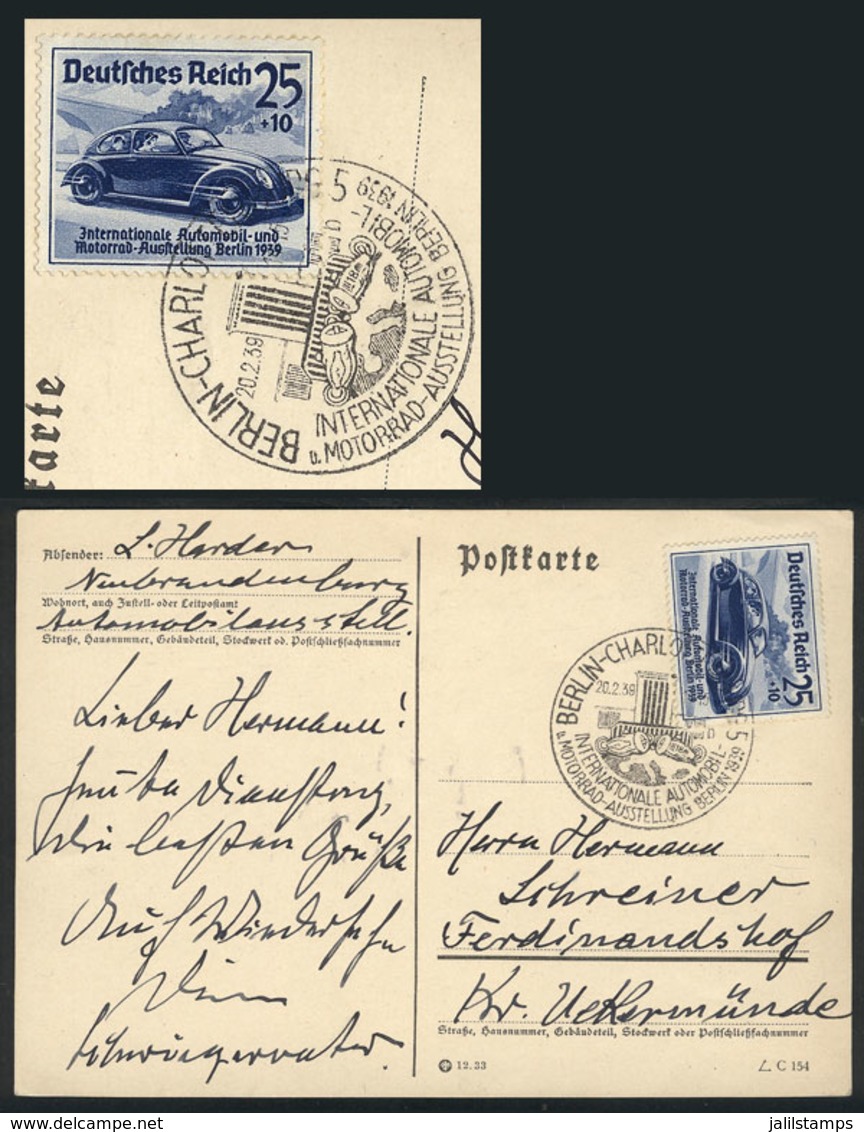 Deutsches Reich 25
+10
Internationale Automobil-und
Motorrad-Ausstellung Berlin 1939
BERLIN-CHARLO RG 5
20.2.39
INTERNATIONALE AUTOMOBIL-
u. MOTORRAD-AUSSTELLUNG BERLIN 1939
karte
Absender: L. Harder
Neubrandenburg
Wohnort, auch Zustell- oder Leitpostamt
Automobilausstell.
Straße, Hausnummer, Gebäudeteil, Stockwerk od. Postschließfachnummer
Lieber Hermann!
heute Dienstag,
die besten Grüße
Auf Wiedersehn
Dein
Schwiegervater.
Postkarte
Deutsches Reich 25
+10
Internationale Automobil-und
Motorrad-Ausstellung Berlin 1939
BERLIN-CHARLO RG 5
20.2.39
INTERNATIONALE AUTOMOBIL-
u. MOTORRAD-AUSSTELLUNG BERLIN 1939
Herrn Hermann
Schreiner
Ferdinandshof
Kr. Ueckermünde
Straße, Hausnummer, Gebäudeteil, Stockwerk oder Postschließfachnummer
12.33
C 154
delcampe.net
jalilstamps